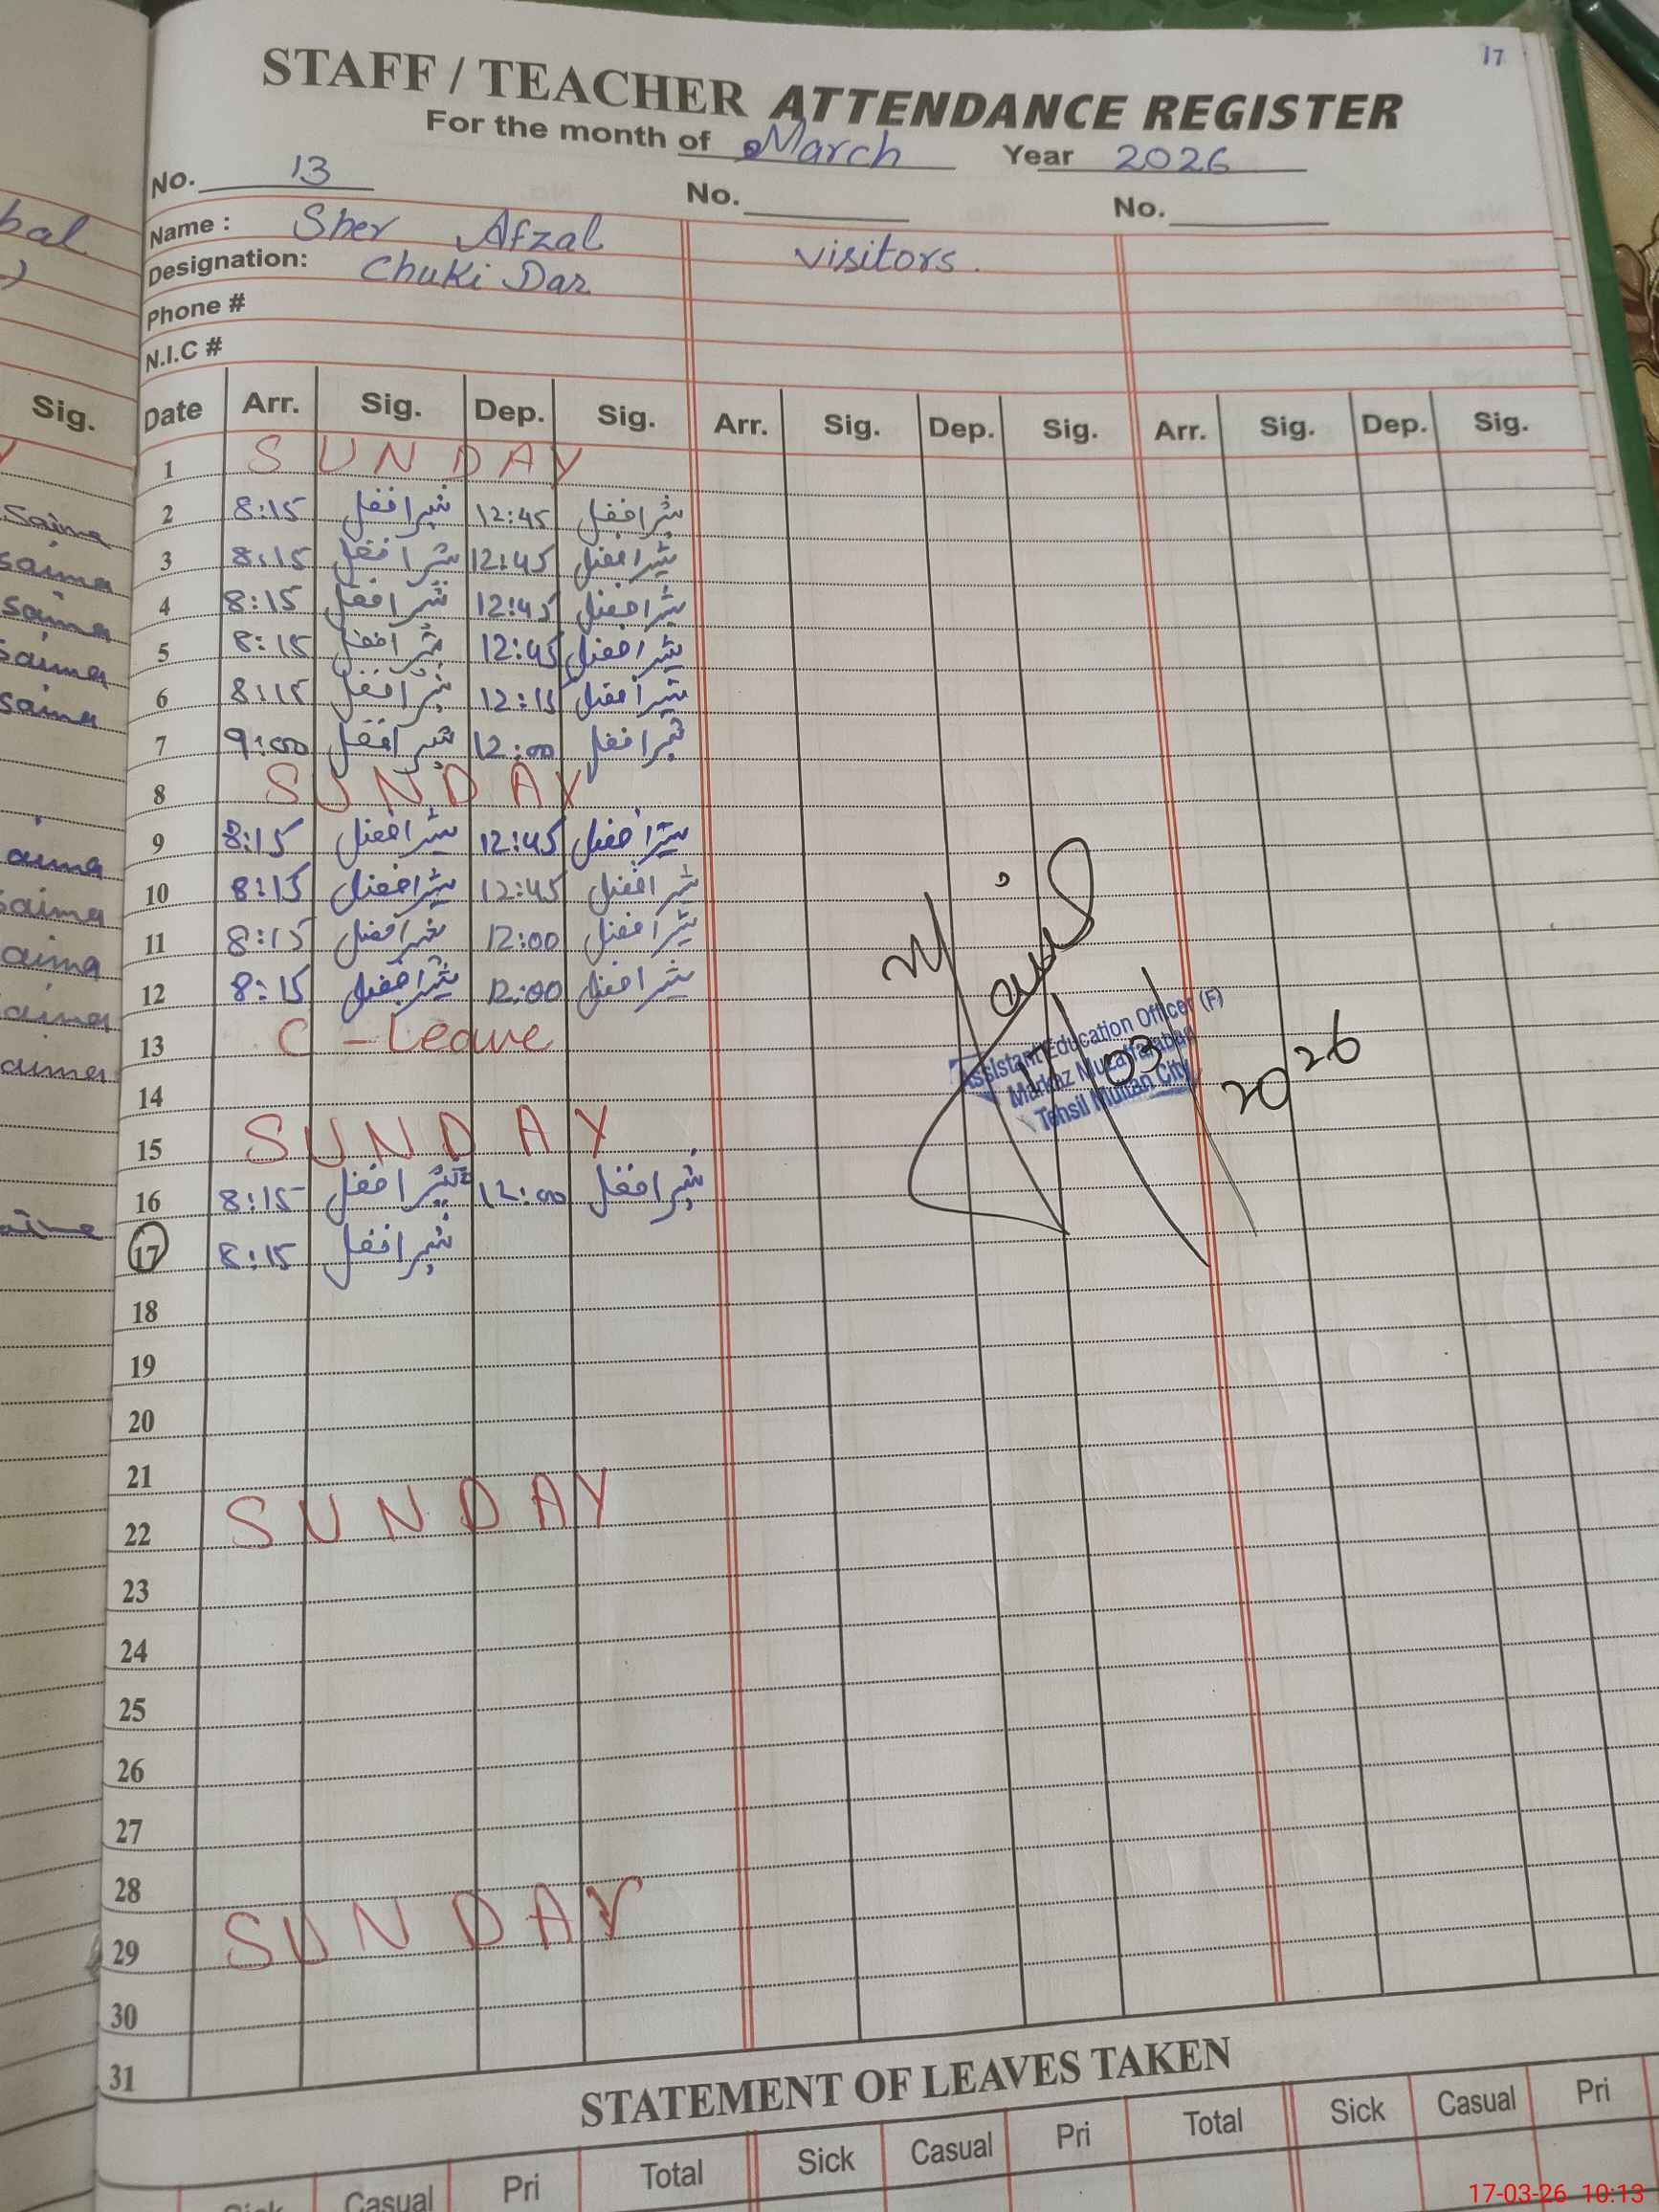 17
STAFF / TEACHER ATTENDANCE REGISTER
For the month of March Year 2026
No. 13 No. No.
Name : Sher Afzal visitors.
Designation: Chuki Dar
Phone #
N.I.C #
Sig. Date Arr. Sig. Dep. Sig. Arr. Sig. Dep. Sig. Arr. Sig. Dep. Sig.
1 SUNDAY
Saima 2 8:15 شیرافضل 12:45 شیرافضل
saima 3 8:15 شیرافضل 12:45 شیرافضل
saima 4 8:15 شیرافضل 12:45 شیرافضل
saima 5 8:15 شیرافضل 12:45 شیرافضل
saima 6 8:15 شیرافضل 12:15 شیرافضل
7 9:00 شیرافضل 12:00 شیرافضل
8 SUNDAY
aima 9 8:15 شیرافضل 12:45 شیرافضل
saima 10 8:15 شیرافضل 12:45 شیرافضل
aima 11 8:15 شیرافضل 12:00 شیرافضل
aima 12 8:15 شیرافضل 12:00 شیرافضل
aima 13 C - Leave
14
15 SUNDAY
16 8:15 شیرافضل 12:00 شیرافضل
17 8:15 شیرافضل
18
19
20
21
22 SUNDAY
23
24
25
26
27
28
29 SUNDAY
30
31
Assistant Education Officer (F)
Markaz Muzaffarabad
Tehsil Multan City
17/03/2026
STATEMENT OF LEAVES TAKEN
Sick Casual Pri Total Sick Casual Pri Total Sick Casual Pri
17-03-26 10:13